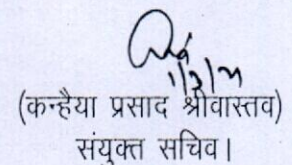 (कन्हैया प्रसाद श्रीवास्तव)
संयुक्त सचिव।